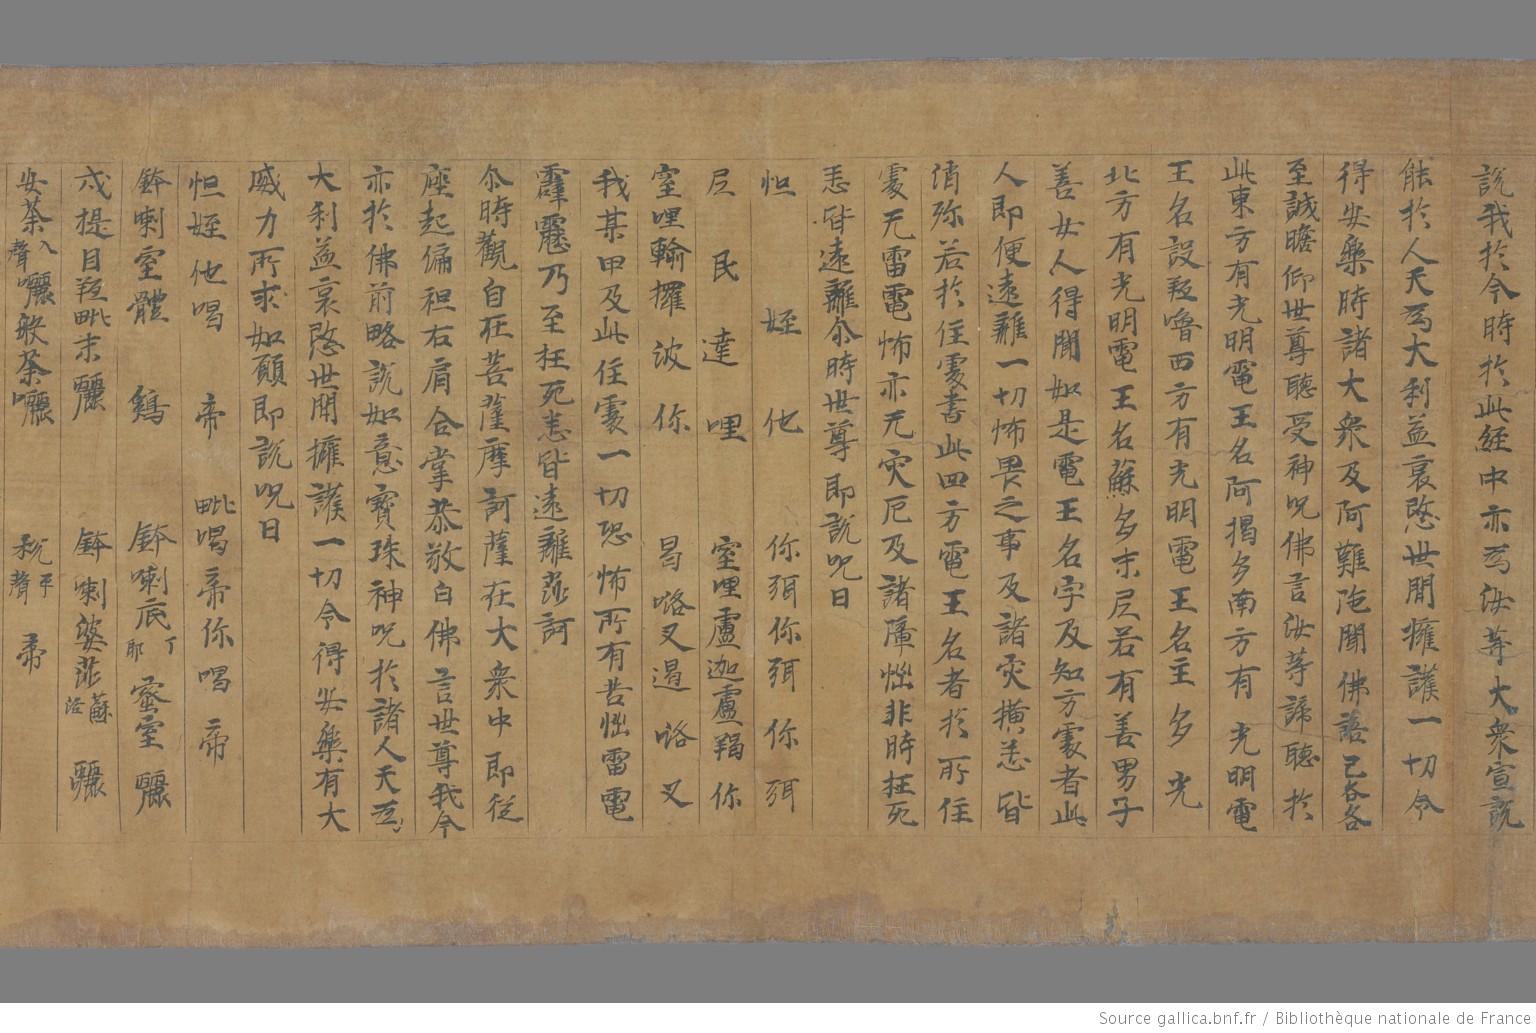 說我於今時於此經中亦為汝等大衆宣說
能於人天為大利益哀愍世間擁護一切令
得安樂時諸大衆及阿難陁聞佛語已各各
至誠瞻仰世尊聽受神呪佛言汝等諦聽於
此東方有光明電王名阿揭多南方有光明電
王名設羝嚕西方有光明電王名主多光
北方有光明電王名蘇多末尼若有善男子
善女人得聞如是電王名字及知方處者此
人即便遠離一切怖畏之事及諸灾橫悉皆
消弥若於住處書此四方電王名者於所住
處无雷電怖亦无灾厄及諸障惱非時枉死
悉皆遠離尒時世尊即說呪曰
怛姪他你弭你弭你弭
尼民達哩窒哩盧迦盧羯你
窒哩輸攞波你曷咯叉遏咯叉
我某甲及此住處一切恐怖所有苦惱雷電
霹靂乃至枉死悉皆遠離莎訶
尒時觀自在菩薩摩訶薩在大衆中即從
座起偏袒右肩合掌恭敬白佛言世尊我今
亦於佛前略說如意寶珠神呪於諸人天為
大利益哀愍世間擁護一切令得安樂有大
威力所求如願即說呪曰
怛姪他喝帝毗喝帝你喝帝
鉢喇窒體鷄鉢喇底丁耶蜜窒囇
戍提目羝毗末囇鉢喇婆莎蘇活囇
安荼入聲囇般荼囇稅平聲帝